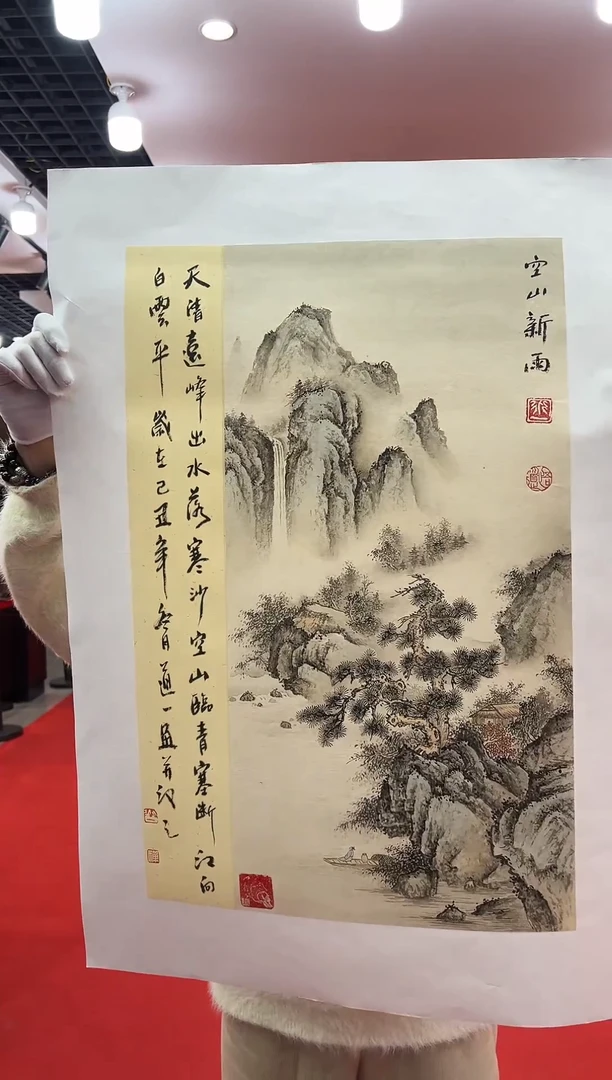 空山新雨
天清遠峰出水落寒沙空山臨青塞斷江向
白雲平 歲在己丑年 道一 并记之